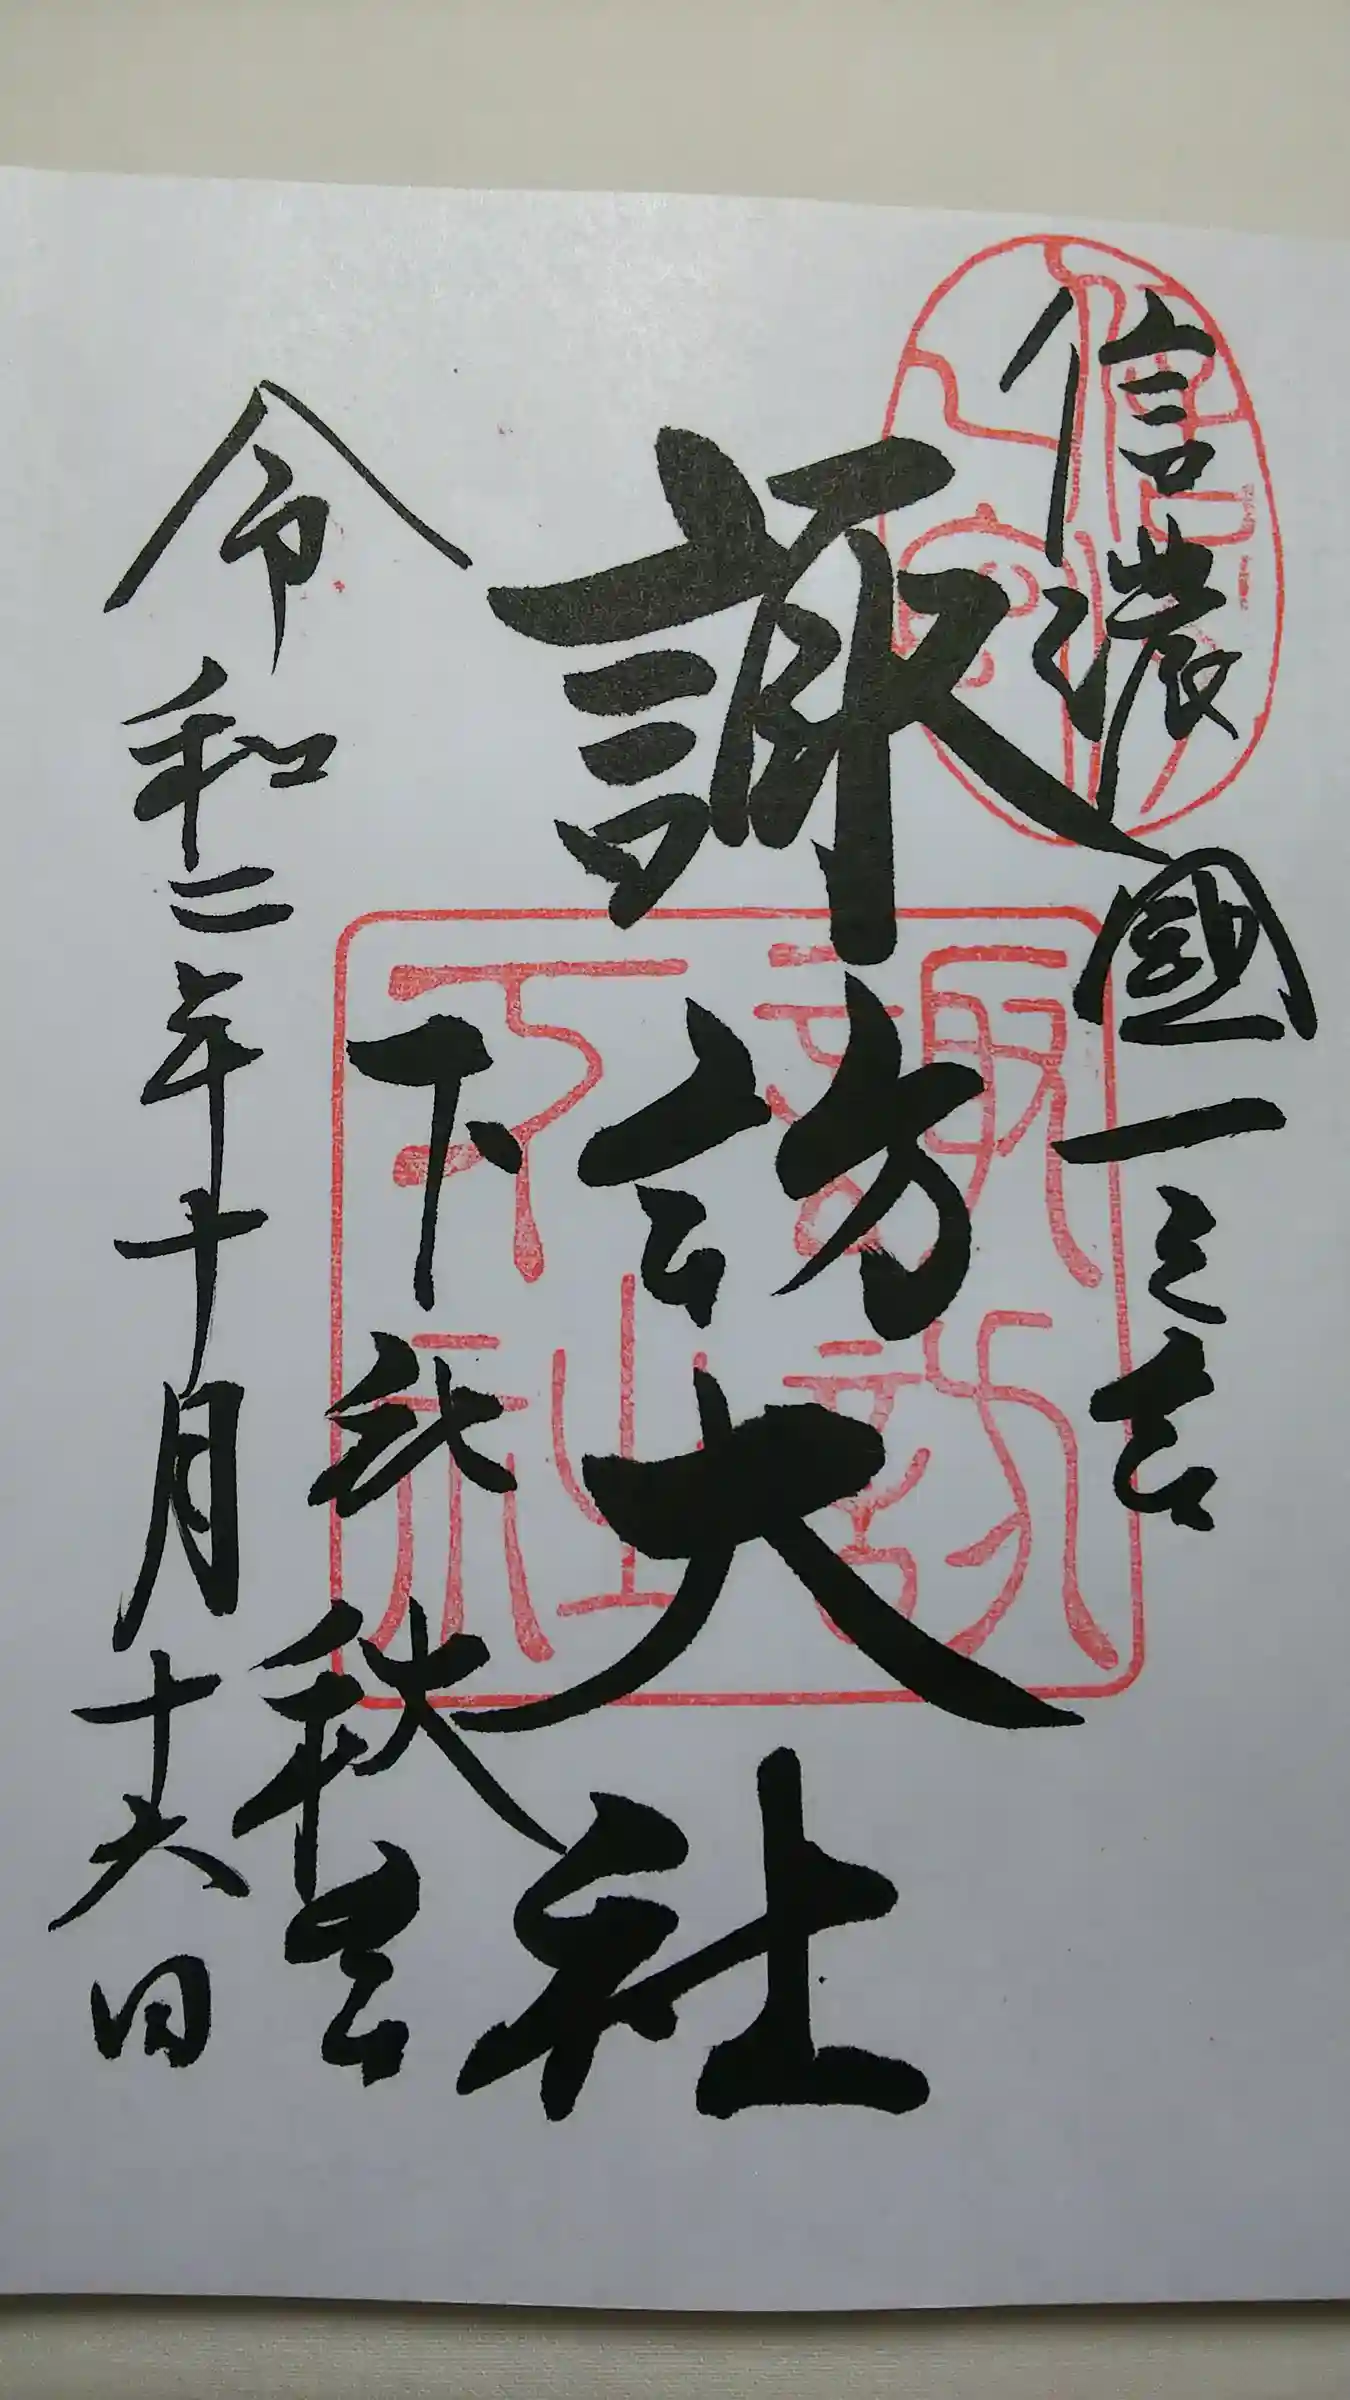 信濃國一之宮
諏訪大社
下社秋宮
令和二年十月十六日
諏訪大社下社